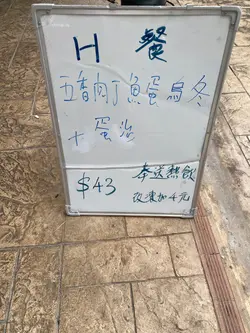 H 餐
五香肉丁魚蛋烏冬
+ 蛋治
$43 奉送熱飲
改凍加4元